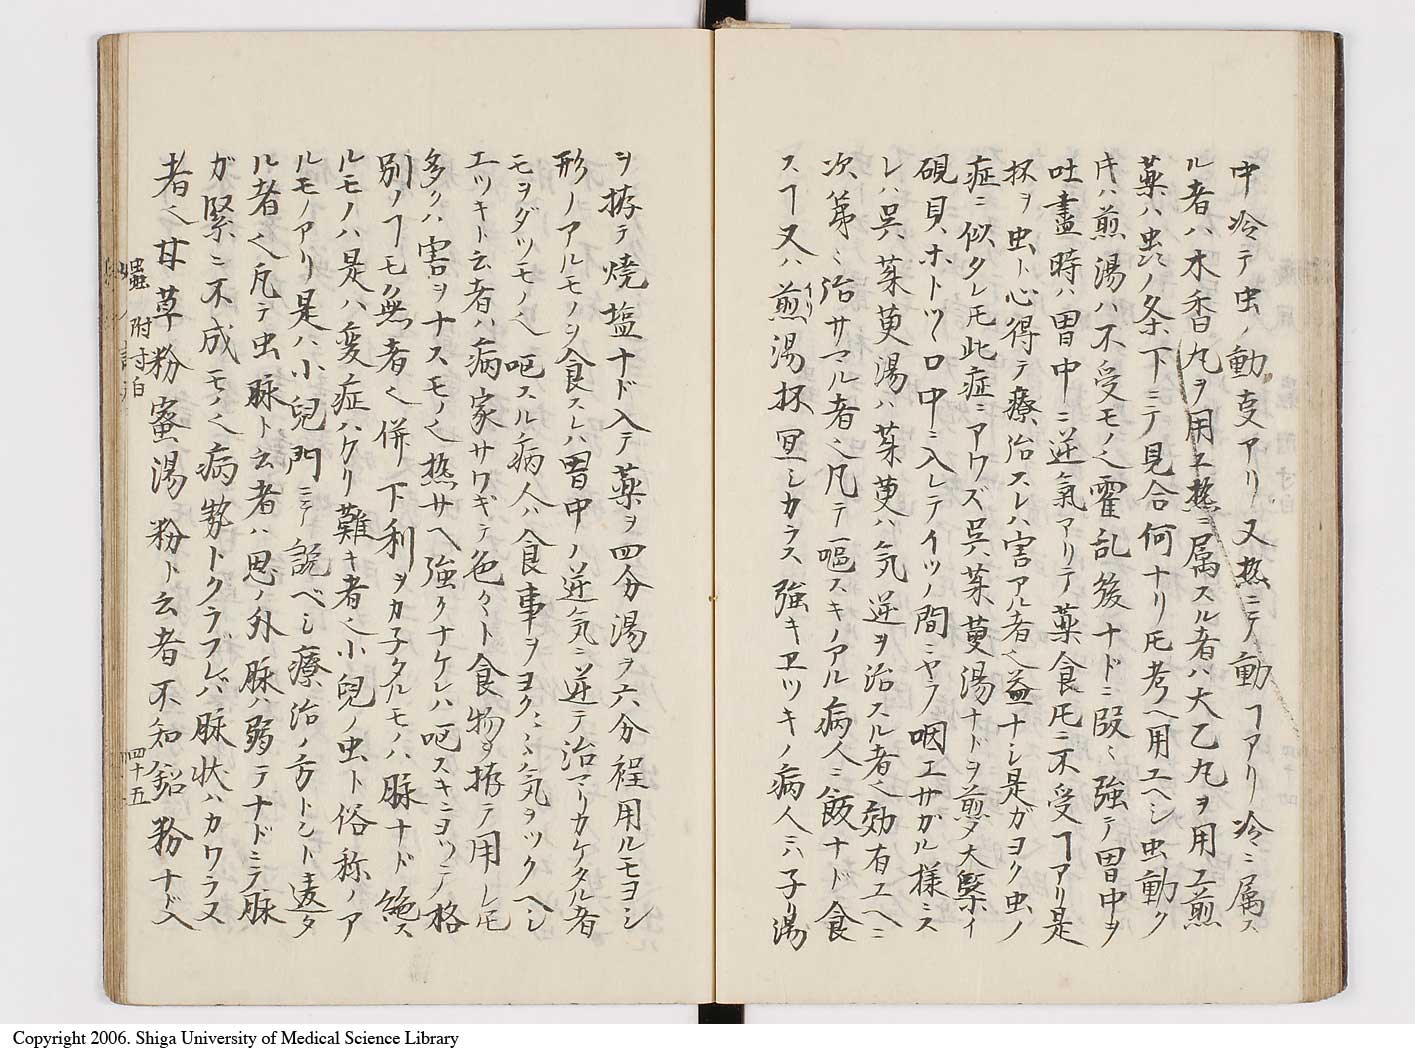 中冷テ虫ノ動支アリ又熱ニテ動ヿアリ冷ニ属ス
ル者ハ木香丸ヲ用エ熱ニ属スル者ハ大乙丸ヲ用エ煎
薬ハ虫ノ条下ニテ見合何ナリ𪜈考ヘ用エヘシ虫動ク
𪜈ハ煎湯ハ不受モノ也霍乱後ナドニ叚〻強テ胃中ヲ
吐盡時ハ胃中ニ逆氣アリテ薬食𪜈ニ不受ヿアリ是
抔ヲ虫ト心得テ療治スレハ害アル者也益ナシ是ガヨク虫ノ
症ニ似タレ𪜈此症ニアワズ呉茱萸湯ナドヲ煎〆大緊イ
硯貝ホトツヽ口中ニ入レテイツノ間ニヤラ咽エサガル様ニス
レハ呉茱萸湯ハ茱萸ハ気逆ヲ治スル者也効有エヘニ
次第〻治サマル者也凡テ嘔スキノアル病人ニ飯ナド食
スヿ又ハ煎イリ湯抔冝シカラス強キヱツキノ病人ニハ子リ湯
ヲ拵テ焼塩ナド入テ薬ヲ四分湯ヲ六分程用ルモヨシ
形ノアルモノヲ食スレハ胃中ノ逆気ニ逆テ治マリカケタル者
モヲダツモノ也嘔スル病人ハ食事ヲヨク〻〻気ヲツクヘシ
エツキト云者ハ病家サワギテ色〻ト食物ヲ拵テ用レ𪜈
多クハ害ヲナスモノ也熱サヘ強クナケレハ嘔スキニヨツテ格
別ノヿモ無者也併下利ヲカ子タルモノハ脉ナド絶ス
ルモノハ是ハ変症ハクリ難キ者也小兒ノ虫ト俗称ノア
ルモノアリ是ハ小兒門ニテ説ベシ療治ノ方トント違タ
ル者也凡テ虫脉ト云者ハ思ノ外脉ハ弱テナドニテ脉
ガ緊ニ不成モノ也病数トクラブレバ脉状ハカワラヌ
者也甘草粉蜜湯粉ト云者不知鉛粉ナド入
蟲 附寸白
四十五
Copyright 2006. Shiga University of Medical Science Library